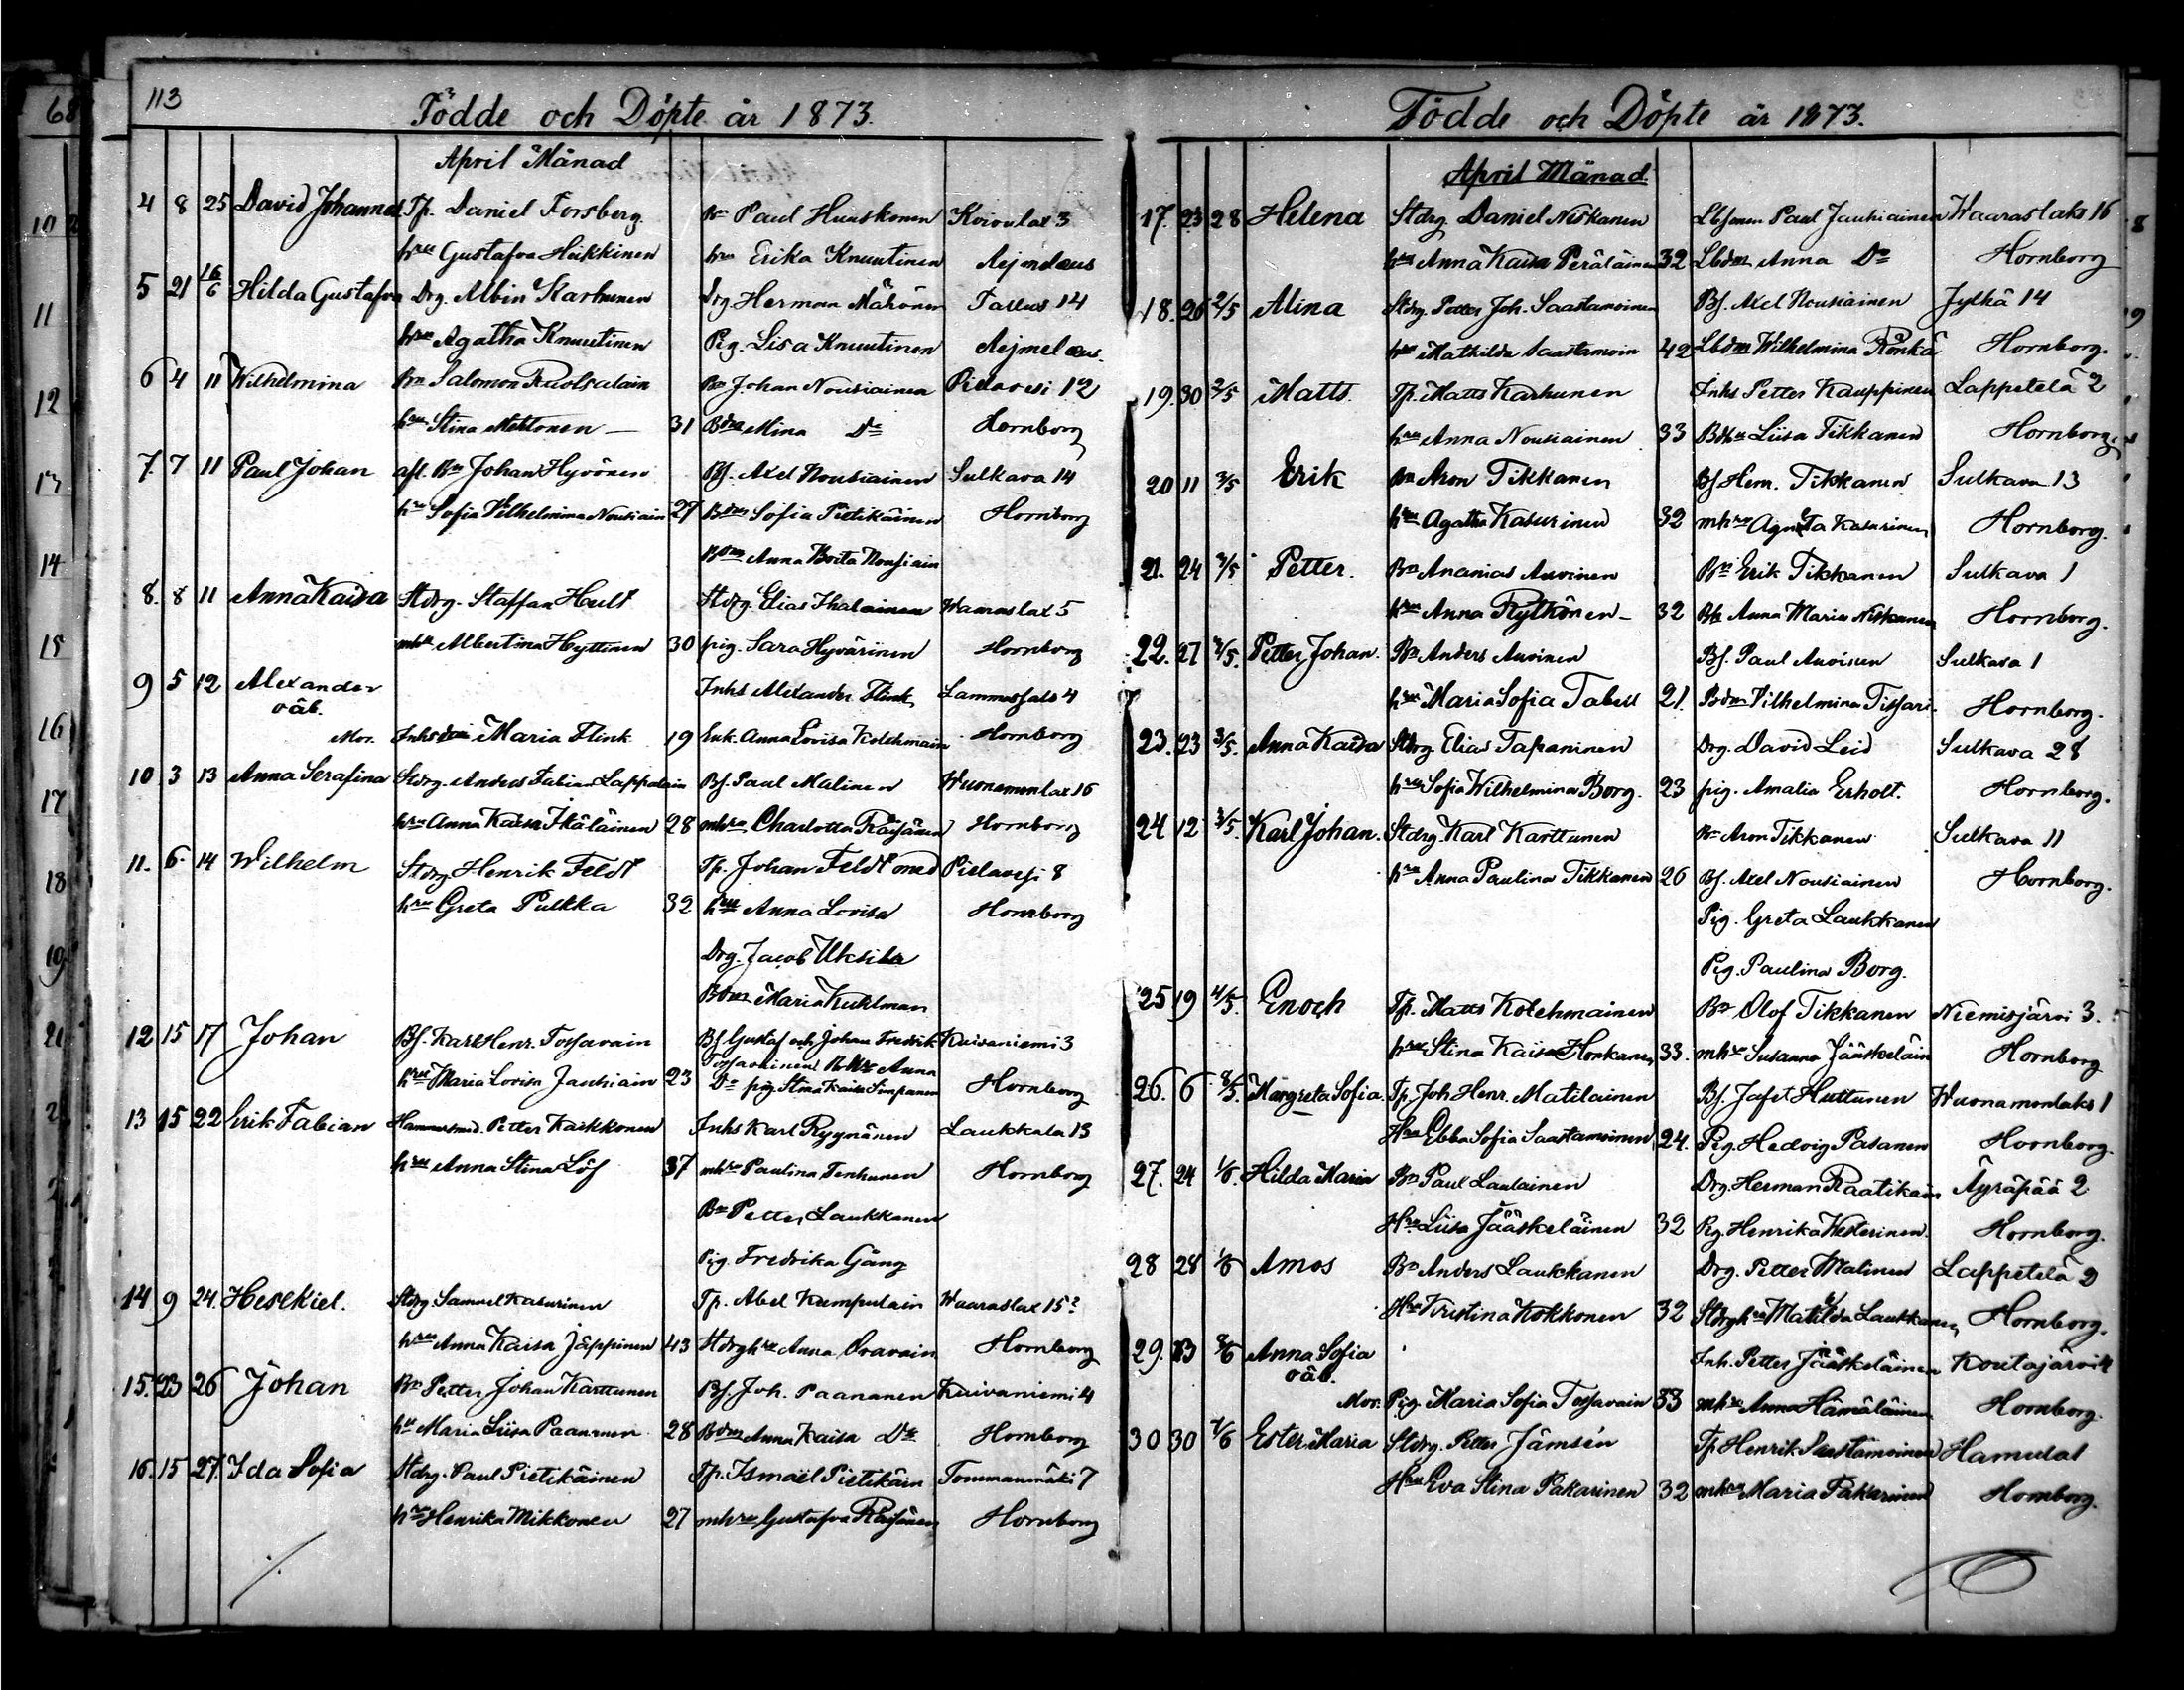 113
Födde och Döpte år 1873.
April Månad
4 8 25 David Johannes Tp. Daniel Forsberg Bn Paul Huuskonen Koivulax 3
hru Gustafva Heikkinen hru Erika Knuutinen
5 21 16/6 Hilda Gustafva Drg. Albin Karhunen Drg Herman Mähönen Tallus 14
hru Agatha Knuutinen Pig. Lisa Knuutinen Aejmelæus.
6 4 11 Wilhelmina Bn Salomon Ruotsalain Bn Johan Nousiainen Pielavesi 12
hru Stina Mettonen — 31 Bdrn Mina Do Hornborg
7. 7 11 Paul Johan afl. Bn Johan Hyvönen Bf. Axel Nousiainen Sulkava 14
hru Sofia Vilhelmina Nousiain 27 Bdrn Sofia Pietikäinen Hornborg
Bdrn Anna Brita Nousiain
8. 8 11 Anna Kaisa Stdrg. Staffan Hult Stdrg. Elias Ihalainen Waaraslax 5
mhu Albertina Hyttinen 30 pig. Sara Hyvärinen Hornborg
9 5 12 Alexander Inhs Alexander Flink Lammasfals 4
oäb.
Mor. Inhsdr Maria Flink 19 Enk. Anna Lovisa Kolehmain Hornborg
10 3 13 Anna Serafina Stdrg. Anders Fabian Lappalain Bf. Paul Malinen Wuonamonlax 16
hru Anna Kaisa Ikäläinen 28 mhru Charlotta Räisänen Hornborg
11. 6. 14 Wilhelm Stdrg Henrik Feldt Tp. Johan Feldt med Pielavesi 8
hru Greta Pulkka 32 hru Anna Lovisa Hornborg
Drg. Jacob Uksila
Bdrn Maria Kuhlman
12 15 17 Johan Bf. Karl Henr. Tossavain Bf Gustaf och Johan Fredrik Kaivaniemi 3
Tossavainen Anna
hru Maria Lovisa Jauhiain 23 Do pig. Stina Kaisa Simpanen Hornborg
13 15 22 Erik Fabian Hammarsmed. Petter Kaikkonen Inhs Karl Ryynänen Laukkala 13
hru Anna Stina Löf 37 mhru Paulina Tenhunen Hornborg
Bn Petter Laukkanen
Pig. Fredrika Gäng
14 9 24. Hesekiel. Stdrg Samuel Kasurinen Tp. Abel Kumpulain Waaraslax 15?
hru Anna Kaisa Jäppinen 43 Stdrghu Anna Oravain Hornborg
15. 23 26 Johan Bn Petter Johan Karttunen Bf. Joh. Paananen Kuivaniemi 4
hu Maria Liisa Paananen 28 Bdrn Anna Kaisa Do Hornborg
16. 15 27. Ida Sofia Stdrg. Paul Pietikäinen Tp. Ismaël Pietikäin Tommanmäki 7
hru Henrika Mikkonen 27 mhru Gustafva Räisänen Hornborg
Födde och Döpte år 1873.
April Månad.
17. 23 28 Helena Stdrg Daniel Niskanen Lbfmn Paul Jauhiainen Waaraslaks 16
hru Anna Kaisa Peräläinen 32 Lbdrn Anna Do Hornborg
18. 26 2/5 Alina Stdrg. Petter Joh. Saastamoinen Bf. Axel Nousiainen Jylhä 14
hru Mathilda Saastamoin 42 Lbdrn Wilhelmina Rönkä Hornborg.
19. 30 2/5 Matts. Tp. Matts Karhunen Inhs Petter Kauppinen Lappetelä 2
hru Anna Nousiainen 33 Bdhu Liisa Tikkanen Hornborg
20 11 3/5 Erik Bn Aron Tikkanen Bf Hem. Tikkanen Sulkava 13
hru Agatha Kasurinen 32 mhru Agneta Kasurinen Hornborg.
21. 24 3/5 Petter. Bn Ananias Auvinen Bn Erik Tikkanen Sulkava 1
hru Anna Rytkönen — 32 Bh Anna Maria Niskanen Hornborg.
22. 27 3/5. Petter Johan. Bn Anders Auvinen Bf. Paul Auvinen Sulkava 1
hru Maria Sofia Tabell 21. Bdrn Vilhelmina Tissari. Hornborg.
23. 23 3/5. Anna Kaisa Stdrg Elias Tapaninen Drg. David Leid Sulkava 28
hru Sofia Wilhelmina Borg. 23 pig. Amalia Erholt. Hornborg.
24 12 3/5. Karl Johan. Stdrg. Karl Karttunen Bn Aron Tikkanen Sulkava 11
hru Anna Paulina Tikkanen 26 Bf. Axel Nousiainen Hornborg.
Pig. Greta Laukkanen
Pig. Paulina Borg.
25 19 4/5. Enoch Tp. Matts Kolehmainen Bn Olof Tikkanen Niemisjärvi 3.
hru Stina Kaisa Honkanen 33. mhru Susanna Jääskeläin Hornborg
26. 6 8/5. Margreta Sofia. Tp. Joh Henr. Matilainen Bf. Jafet Huttunen Wuonamonlaks 1
Hru Ebba Sofia Saastamoinen 24. Pig. Hedvig Pasanen Hornborg.
27. 24 1/6. Hilda Maria Bn Paul Laulainen Drg. Herman Raatikain Äyräpää 2
Hru Liisa Jääskeläinen 32 Pig. Henrika Westerinen. Hornborg.
28 28 1/6 Amos Bn Anders Laukkanen Drg. Petter Malinen Lappetelä 2
Hru Kristina Kokkonen 32 Stdrghu Matilda Laukkanen Hornborg.
29. 23 8/6 Anna Sofia Inh. Petter Jääskeläinen Koutajärvi 4
oäb.
Mor. Pig. Maria Sofia Tossavain 33 mhru Anna Hämäläinen Hornborg.
30 30 7/6 Ester Maria Stdrg. Petter Jämsén Tp Henrik Saastamoinen Hamulat
Hru Eva Stina Pakarinen 32 mhru Maria Pakarinen Hornborg.